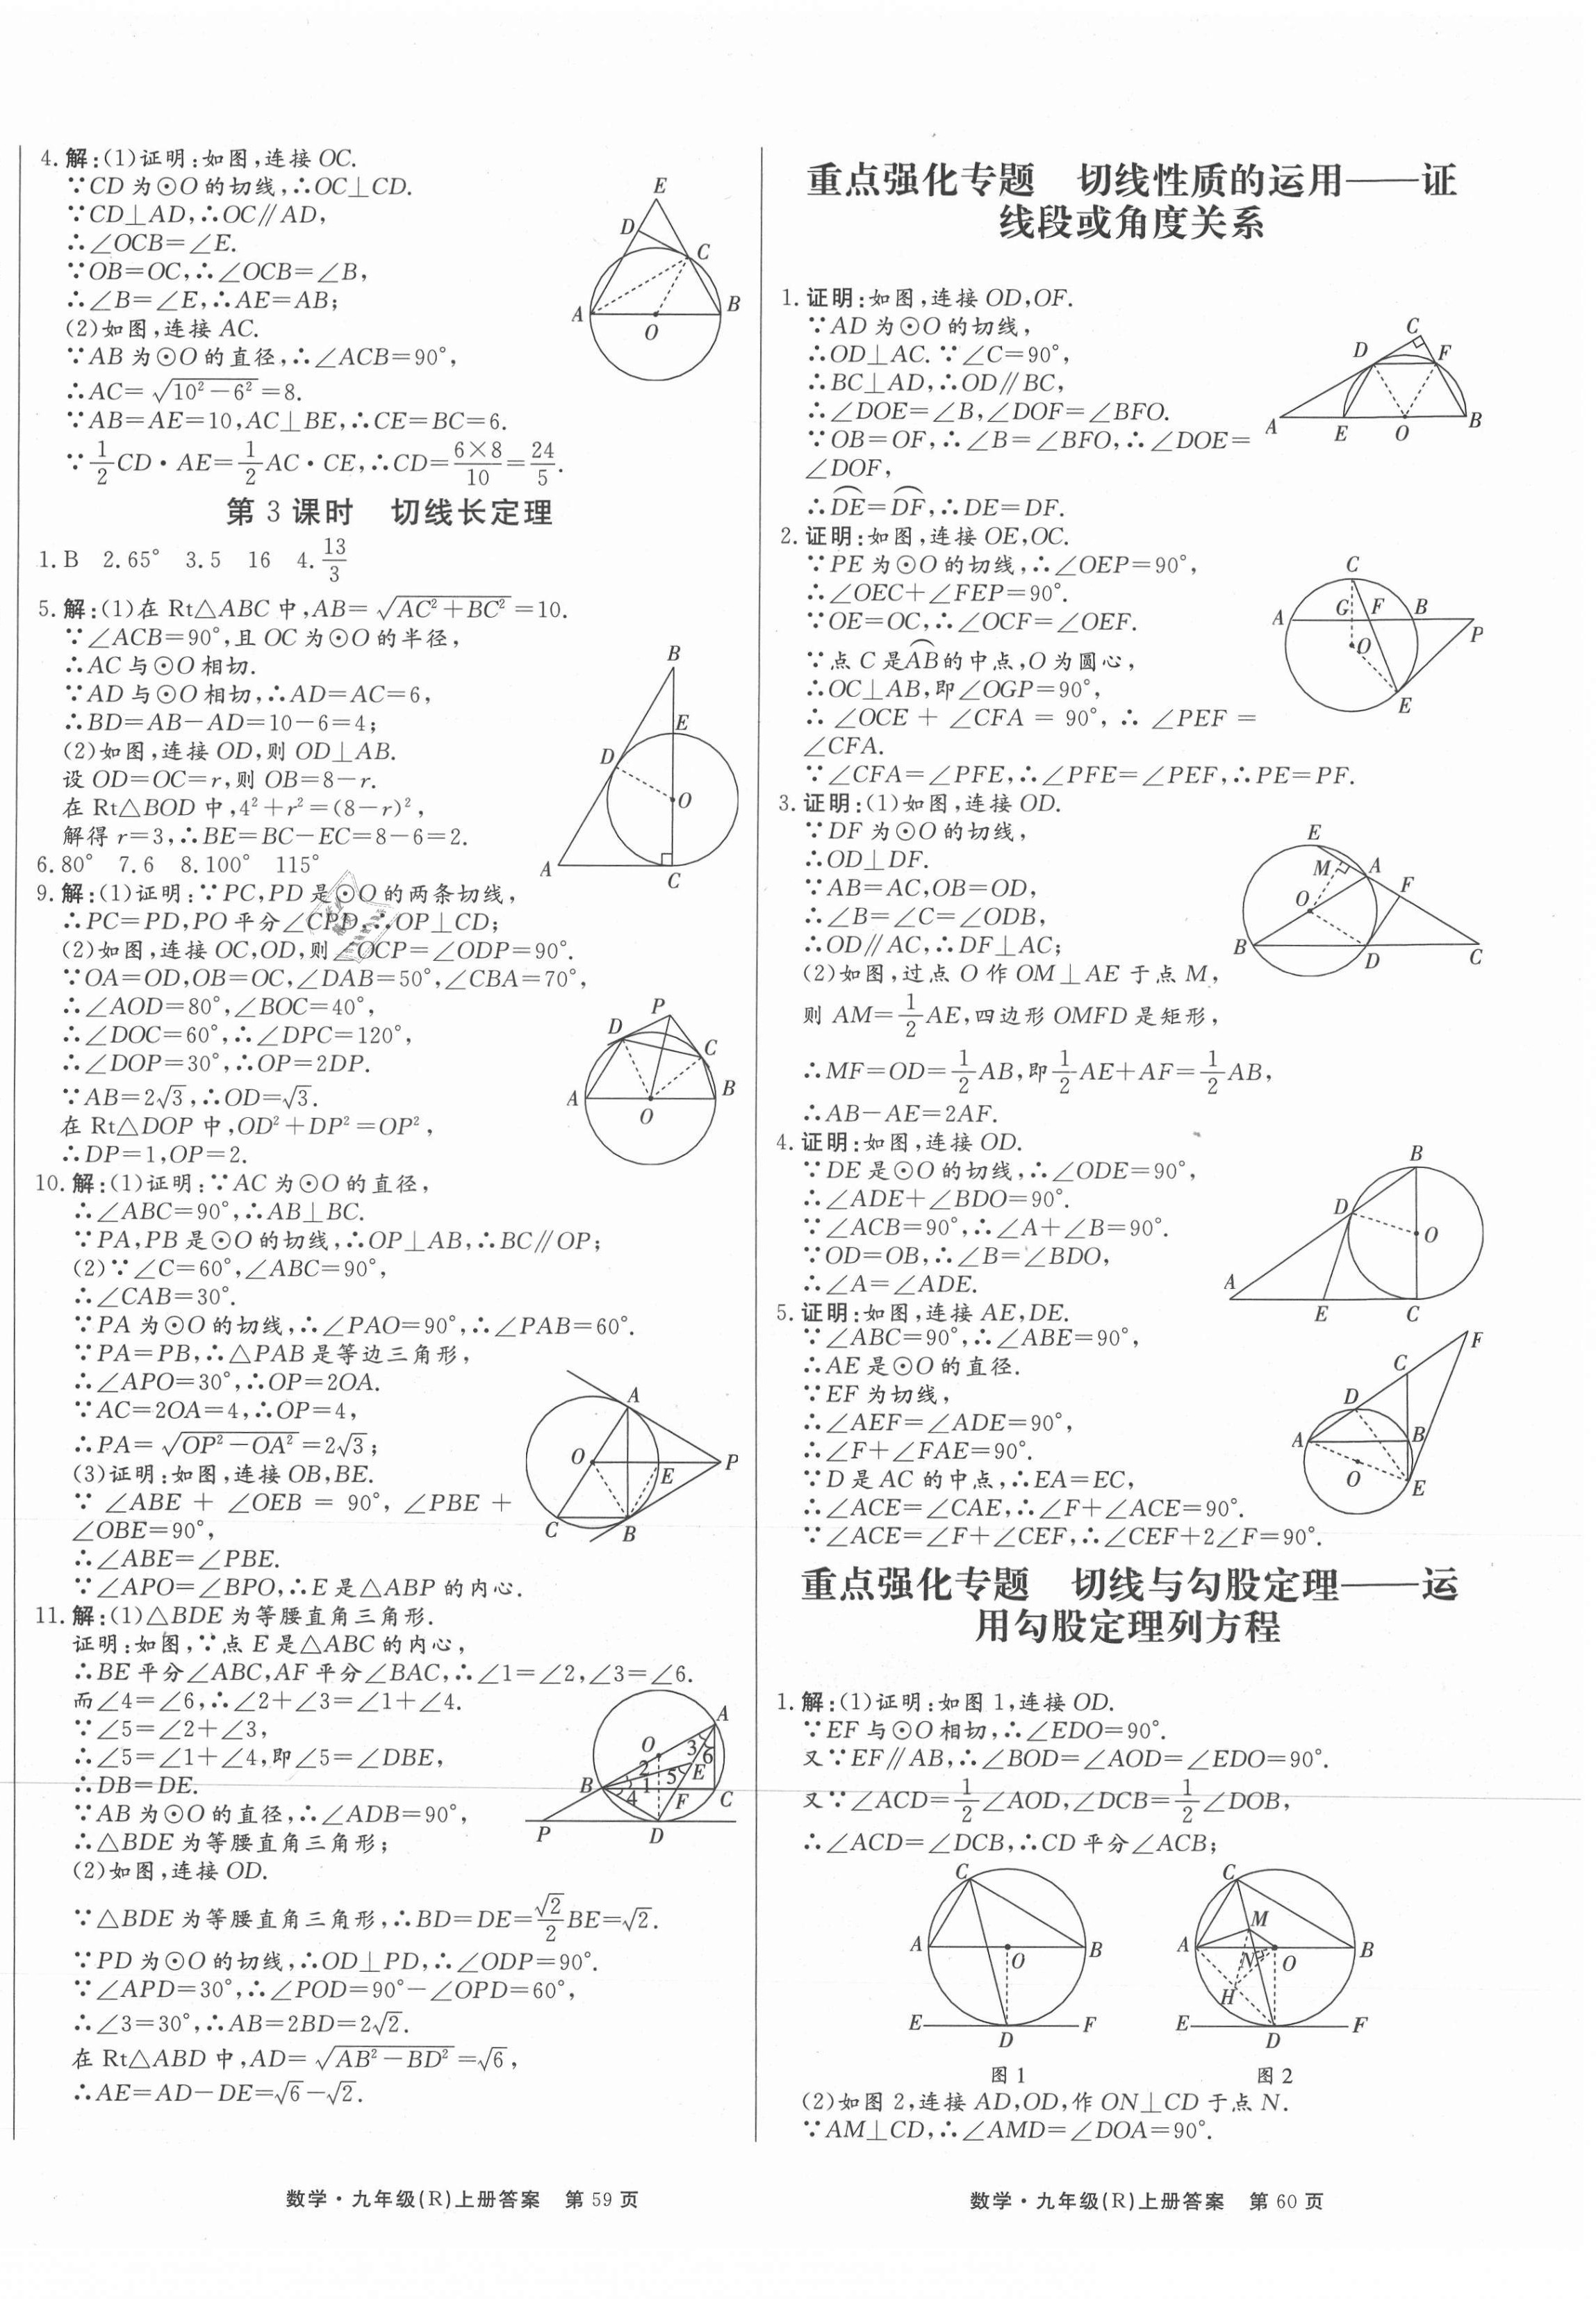 4.解:(1)证明:如图,连接 OC.
∵CD 为⊙O 的切线,∴OC⊥CD.
∵CD⊥AD,∴OC∥AD,
∴∠OCB=∠E.
∵OB=OC,∴∠OCB=∠B,
∴∠B=∠E,∴AE=AB;
(2)如图,连接 AC.
∵AB 为⊙O 的直径,∴∠ACB=90°,
∴AC=√(10²-6²)=8.
∵AB=AE=10,AC⊥BE,∴CE=BC=6.
∵1/2 CD·AE=1/2 AC·CE,∴CD=6×8/10=24/5.
E
D
C
A
B
O
第 3 课时 切线长定理
1.B 2.65° 3.5 16 4.13/3
5.解:(1)在 Rt△ABC 中,AB=√(AC²+BC²)=10.
∵∠ACB=90°,且 OC 为⊙O 的半径,
∴AC 与⊙O 相切.
∵AD 与⊙O 相切,∴AD=AC=6,
∴BD=AB-AD=10-6=4;
(2)如图,连接 OD,则 OD⊥AB.
设 OD=OC=r,则 OB=8-r.
在 Rt△BOD 中,4²+r²=(8-r)²,
解得 r=3,∴BE=BC-EC=8-6=2.
B
E
D
O
A
C
6.80° 7.6 8.100° 115°
9.解:(1)证明:∵PC,PD 是⊙O 的两条切线,
∴PC=PD,PO 平分∠CPD,∴OP⊥CD;
(2)如图,连接 OC,OD,则∠OCP=∠ODP=90°.
∵OA=OD,OB=OC,∠DAB=50°,∠CBA=70°,
∴∠AOD=80°,∠BOC=40°,
∴∠DOC=60°,∴∠DPC=120°,
∴∠DOP=30°,∴OP=2DP.
∵AB=2√3,∴OD=√3.
在 Rt△DOP 中,OD²+DP²=OP²,
∴DP=1,OP=2.
P
D
C
A
B
O
10.解:(1)证明:∵AC 为⊙O 的直径,
∴∠ABC=90°,∴AB⊥BC.
∵PA,PB 是⊙O 的切线,∴OP⊥AB,∴BC∥OP;
(2)∵∠C=60°,∠ABC=90°,
∴∠CAB=30°.
∵PA 为⊙O 的切线,∴∠PAO=90°,∴∠PAB=60°.
∵PA=PB,∴△PAB 是等边三角形,
∴∠APO=30°,∴OP=2OA.
∵AC=2OA=4,∴OP=4,
∴PA=√(OP²-OA²)=2√3;
(3)证明:如图,连接 OB,BE.
∵ ∠ABE + ∠OEB = 90°, ∠PBE +
∠OBE=90°,
∴∠ABE=∠PBE.
∵∠APO=∠BPO,∴E 是△ABP 的内心.
A
O
E
P
C
B
11.解:(1)△BDE 为等腰直角三角形.
证明:如图,∵点 E 是△ABC 的内心,
∴BE 平分∠ABC,AF 平分∠BAC,∴∠1=∠2,∠3=∠6.
而∠4=∠6,∴∠2+∠3=∠1+∠4.
∵∠5=∠2+∠3,
∴∠5=∠1+∠4,即∠5=∠DBE,
∴DB=DE.
∵AB 为⊙O 的直径,∴∠ADB=90°,
∴△BDE 为等腰直角三角形;
(2)如图,连接 OD.
∵△BDE 为等腰直角三角形,∴BD=DE=√2/2 BE=√2.
∵PD 为⊙O 的切线,∴OD⊥PD,∴∠ODP=90°.
∵∠APD=30°,∴∠POD=90°-∠OPD=60°,
∴∠3=30°,∴AB=2BD=2√2.
在 Rt△ABD 中,AD=√(AB²-BD²)=√6,
∴AE=AD-DE=√6-√2.
A
O
3
6
2
5
E
B
1
4
F
C
P
D
数学·九年级(R)上册答案 第 59 页
重点强化专题 切线性质的运用——证
线段或角度关系
1.证明:如图,连接 OD,OF.
∵AD 为⊙O 的切线,
∴OD⊥AC.∵∠C=90°,
∴BC⊥AD,∴OD∥BC,
∴∠DOE=∠B,∠DOF=∠BFO.
∵OB=OF,∴∠B=∠BFO,∴∠DOE=
∠DOF,
∴DE⌒=DF⌒,∴DE=DF.
C
D
F
A
E
O
B
2.证明:如图,连接 OE,OC.
∵PE 为⊙O 的切线,∴∠OEP=90°,
∴∠OEC+∠FEP=90°.
∵OE=OC,∴∠OCF=∠OEF.
∵点 C 是AB⌒的中点,O 为圆心,
∴OC⊥AB,即∠OGP=90°,
∴ ∠OCE + ∠CFA = 90°, ∴ ∠PEF =
∠CFA.
∵∠CFA=∠PFE,∴∠PFE=∠PEF,∴PE=PF.
C
G
F
B
A
P
O
E
3.证明:(1)如图,连接 OD.
∵DF 为⊙O 的切线,
∴OD⊥DF.
∵AB=AC,OB=OD,
∴∠B=∠C=∠ODB,
∴OD∥AC,∴DF⊥AC;
(2)如图,过点 O 作 OM⊥AE 于点 M,
则 AM=1/2 AE,四边形 OMFD 是矩形,
∴MF=OD=1/2 AB,即1/2 AE+AF=1/2 AB,
∴AB-AE=2AF.
E
M
A
F
O
B
D
C
4.证明:如图,连接 OD.
∵DE 是⊙O 的切线,∴∠ODE=90°,
∴∠ADE+∠BDO=90°.
∵∠ACB=90°,∴∠A+∠B=90°.
∵OD=OB,∴∠B=∠BDO,
∴∠A=∠ADE.
B
D
O
A
E
C
5.证明:如图,连接 AE,DE.
∵∠ABC=90°,∴∠ABE=90°,
∴AE 是⊙O 的直径.
∵EF 为切线,
∴∠AEF=∠ADE=90°,
∴∠F+∠FAE=90°.
∵D 是 AC 的中点,∴EA=EC,
∴∠ACE=∠CAE,∴∠F+∠ACE=90°.
∵∠ACE=∠F+∠CEF,∴∠CEF+2∠F=90°.
F
C
D
A
B
O
E
重点强化专题 切线与勾股定理——运
用勾股定理列方程
1.解:(1)证明:如图 1,连接 OD.
∵EF 与⊙O 相切,∴∠EDO=90°.
又∵EF∥AB,∴∠BOD=∠AOD=∠EDO=90°.
又∵∠ACD=1/2∠AOD,∠DCB=1/2∠DOB,
∴∠ACD=∠DCB,∴CD 平分∠ACB;
C
A
O
B
E
D
F
图 1
C
M
A
N
O
B
H
E
D
F
图 2
(2)如图 2,连接 AD,OD,作 ON⊥CD 于点 N.
∵AM⊥CD,∴∠AMD=∠DOA=90°.
数学·九年级(R)上册答案 第 60 页